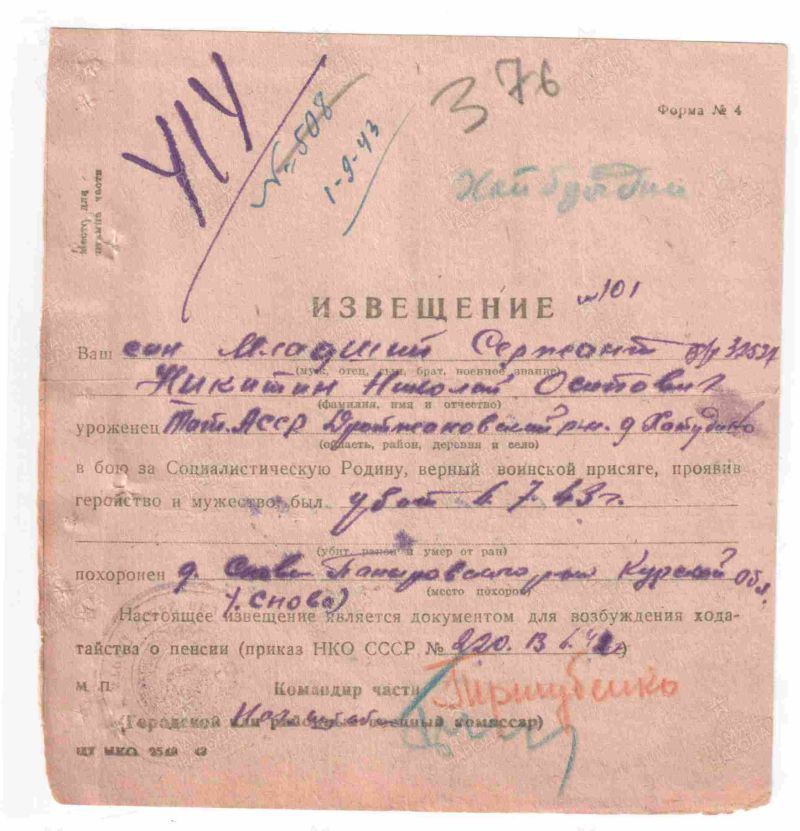 414
№ 508
1-9-43
376
Форма № 4
Хайбулдин
Место для
штампа части
ИЗВЕЩЕНИЕ № 101
Ваш сын Младший Сержант п/п 32534
(муж, отец, сын, брат, военное звание)
Никитин Николай Осипович
(фамилия, имя и отчество)
уроженец Тат.АССР Дрожжановский р-н. д
(область, район, деревня и село)
в бою за Социалистическую Родину, верный воинской присяге, проявив
геройство и мужество, был убит 6.7.43 г.
(убит, ранен и умер от ран)
похоронен д. Снова Курской Обл.
(место похорон)
(. Снова)
Настоящее извещение является документом для возбуждения хода-
тайства о пенсии (приказ НКО СССР № 220.
М. П.
Командир части
(Городской или районный военный комиссар)